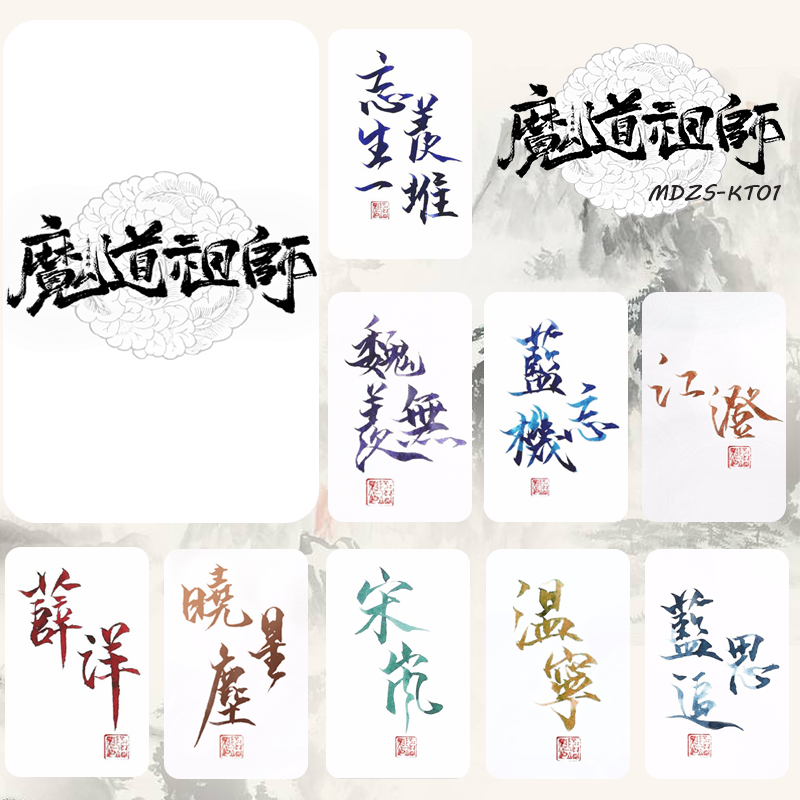 魔道祖師
忘羨
一生堆
魔道祖師
MDZS-KT01
魏無羨
藍忘機
江澄
薛洋
曉星塵
宋嵐
温寧
藍思追